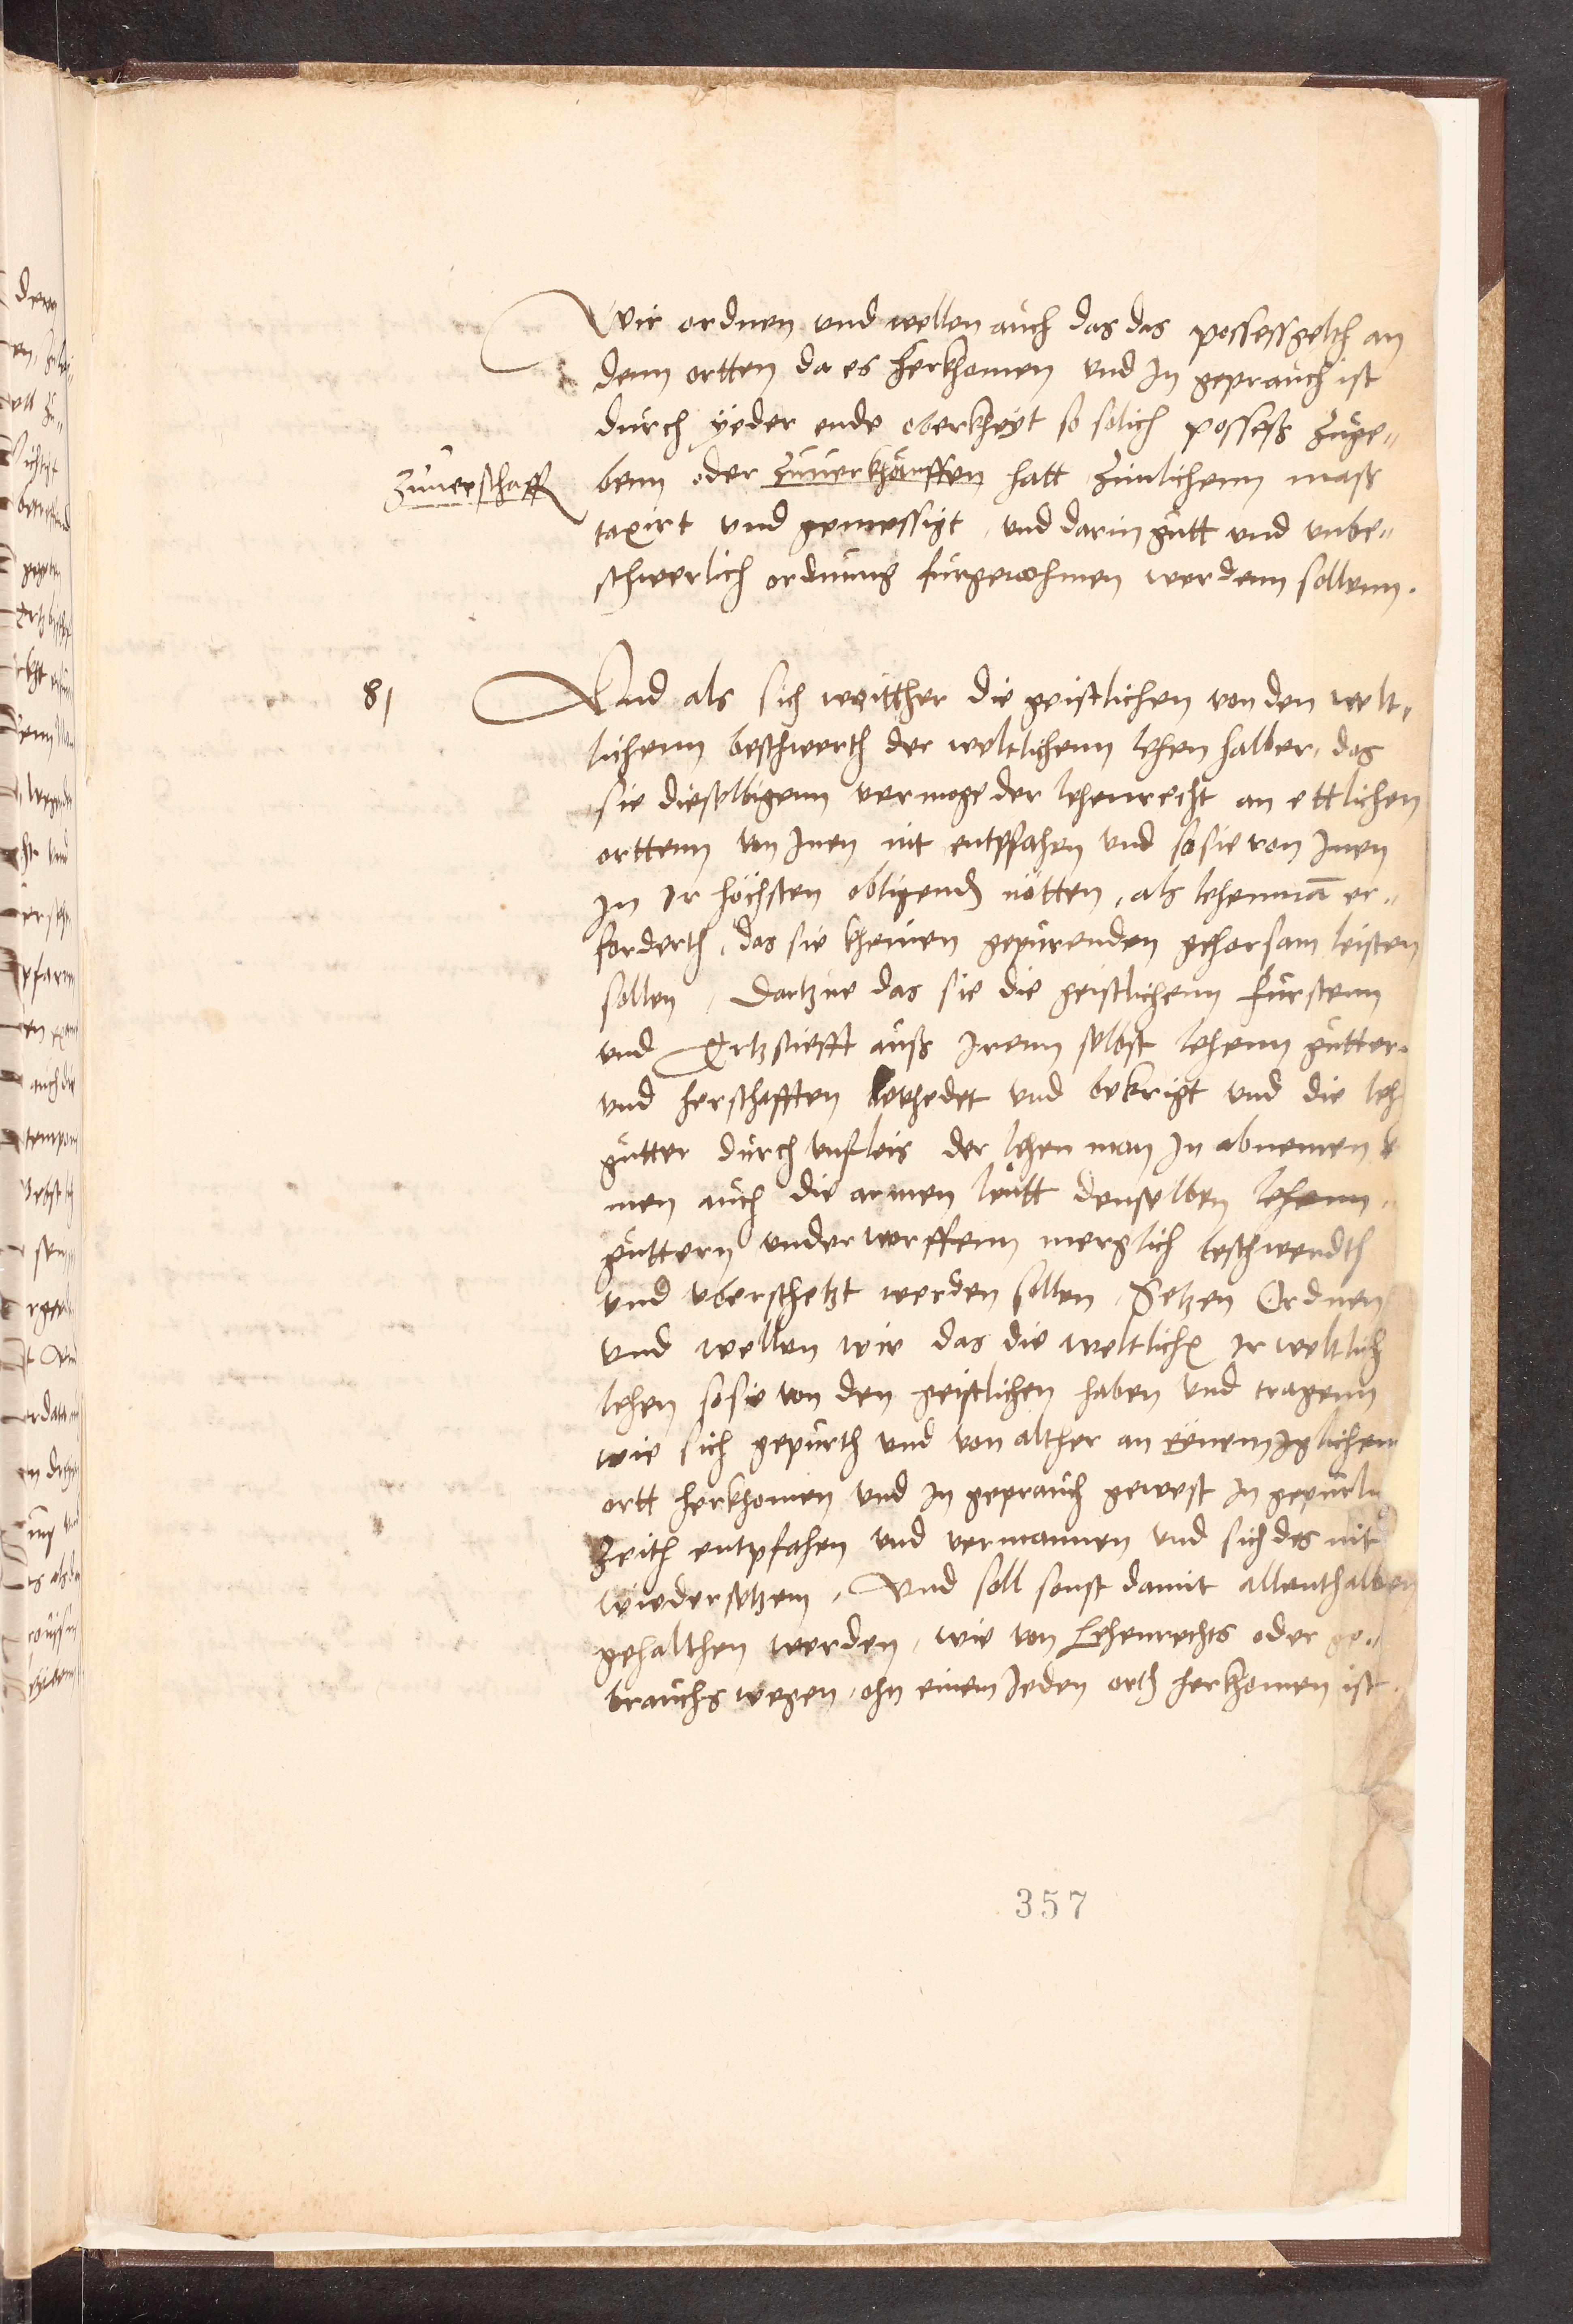 Wir ordnen vnd wellen auch das das possessgelth an
denn ortten da es herkhomen vnd in geprauch ist
durch yeder ende oberkheyt so solich possess zuge„
benn oder zuuerkhauffen hatt zimlichenn mass
zuuerschaff
taxirt vnd gemessigt, vnd darin gutt vnd vnbe„
schwerlich ordnung furgenohmen werdenn sollenn.
81
Vnd als sich weitther die geistlichen von den welt„
lichenn beschwerth der weltlichenn lehen halber, das
sie dieselbigenn vermoge der lehenrecht an ettlichen
orttenn von Inen nit entpfahen vnd so sie von Inen
In Ir höchsten obligends nötten, als lehenman er„
forderth, das sie kheinen gepurenden gehorsam leisten
sollen, dartzue das sie die geistlichenn fursten
vnd Ertzstiefft auss Irenn selbst lehenn gutter
vnd herschafften bevhedet vnd bekrigt vnd die leh
gutter durch vnfleis der lehen man In abnemen k
men auch die armen leutt denselben lehenn„
guttern vnderworffenn merglich beschwerdth
vnd vberschetzt werden sollen, Setzen Ordnen
vnd wellen wir das die weltlichen Ir weltlich
lehen so sie von den geistlichen haben vnd tragenn
wie sich gepurth vnd von alther an eynem Iglichem
ortt herkhomen vnd In geprauch gewest In gepurli
zeith entpfahen vnd vermannen vnd sich des nit
wiedersetzenn, Vnd soll sonst damit allenthalben
gehalthen werden, wie von Lehenrechts oder ge„
brauchs wegen, ohn einem Jeden orth herkhomen ist.
357